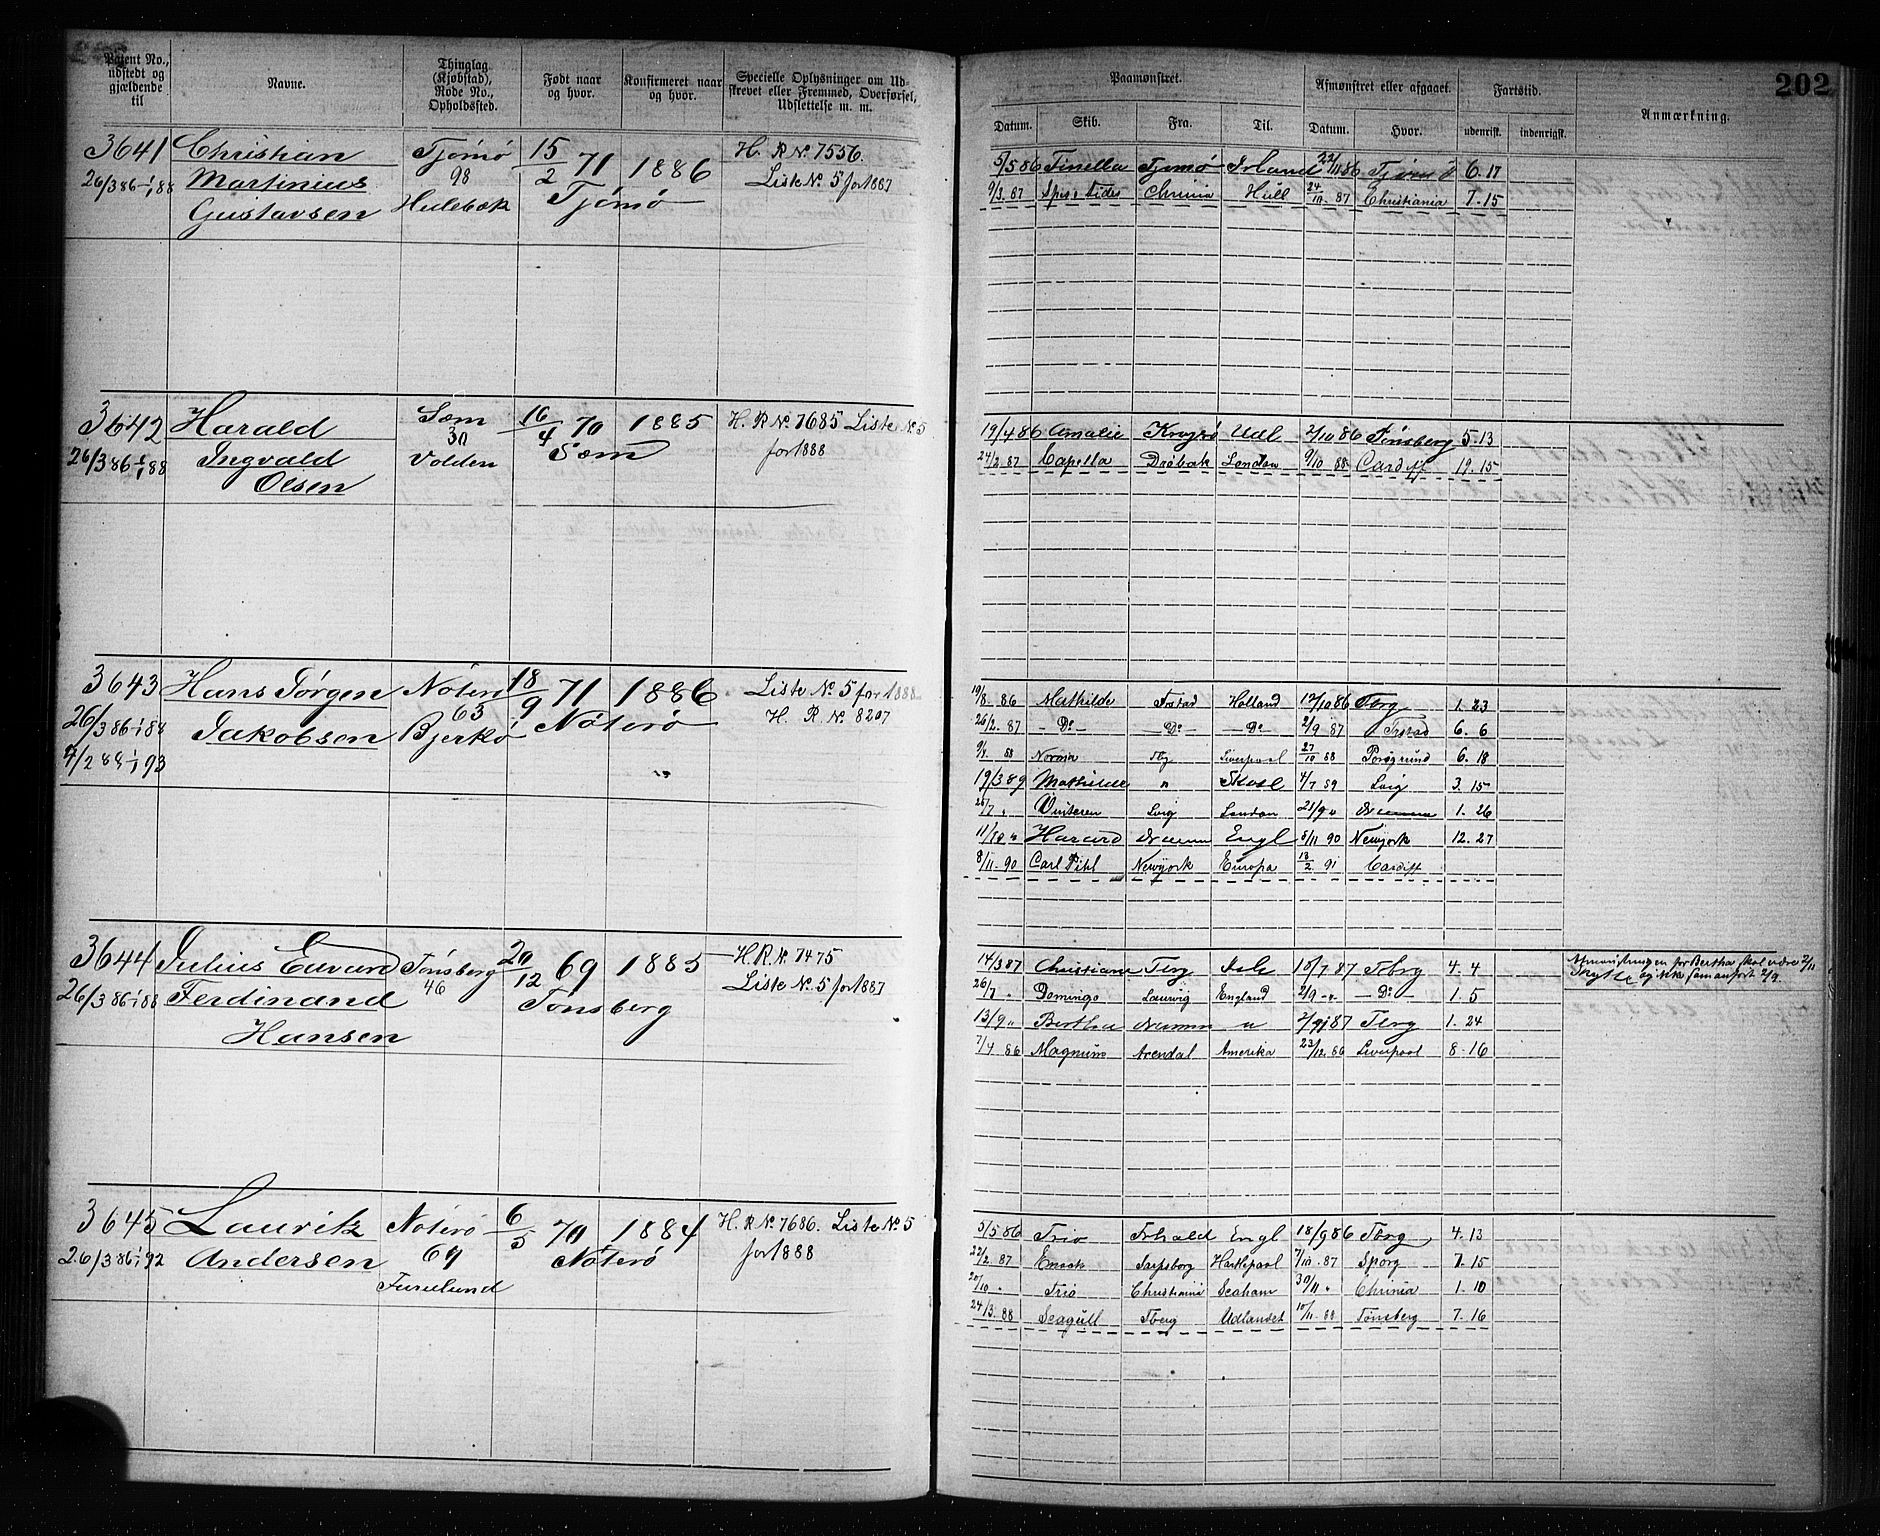 202
Patent No., udstedt og gjældende til
Navne.
Thinglag (Kjøbstad), Rode No., Opholdssted.
Født naar og hvor.
Konfirmeret naar og hvor.
Specielle Oplysninger om Udskrevet eller Fremmed, Overførsel, Udslettelse m. m.
Paamønstret.
Afmønstret eller afgaaet.
Fartstid.
Anmærkning.
Datum. Skib. Fra. Til. Datum. Hvor. udenrigst. indenrigst.
3641 Christian Tjømø 15/2 71 1886 H. R № 7556.
26/3 86 - 1/1 88 Martinius 98 Tjømø Liste № 5 for 1887
Gustavsen Hulebæk
5/5 86 Tinella Tjømø Irland 22/11 86 Tjømø 6.17
9/3. 87 Spes & Fides Chrinia Hull 24/10. 87 Christiania 7.15
3642 Harald Sæm 16/4 70 1885 H. R № 7685 Liste № 5
26/3 86 - 1/1 88 Ingvald 30 Sæm for 1888
Olsen Volden
19/4 86 Amalie Kragerø Udl 2/10 86 Tønsberg 5.13
24/2. 87 Capella Drøbak London 9/10 88 Cardiff 19.15
3643 Hans Jørgen Nøterø 18/9 71 1886 Liste № 5 for 1888
26/3 86 - 1/1 88 Jakobsen 63 Nøterø H. R. № 8207
4/2 88 - 1/1 93 Bjerkø
19/8. 86 Mathilde Frstad Holland 12/10 86 Tbrg 1.23
26/2. 87 - Do - - Do - - Do - 2/9 87 Frstad 6.6
9/4 88 Norma Tbg Liverpool 27/10 88 Porsgrund 6.18
19/3 89 Mathilde " 4/7 89 Lvig 3.15
25/7 " Lvig London 21/9 " Dramm 1.26
11/10 " Harald Dramm Engl 8/11 90 Newyork 12.27
8/11. 90 Carl Pihl Newyork Europa 18/2 91 Cardiff
3644 Julius Edvard Tønsberg 20/12 69 1885 H. R № 7475
26/3 86 - 1/1 88 Ferdinand 46 Tønsberg Liste № 5 for 1887
Hansen
14/3 87 Christiane Tbrg 18/7 87 Tbrg 4.4
26/7 " Domingo Laurvig England 2/9 " - Do - 1.5
13/9 " Bertha Dramm " 87 Tbrg 1.24
7/4 86 Magnum Arendal Amerika 23/12. 86 Liverpool 8.16
Afmønstringen for Bertha skal være 2/11
ikke som anført 2/9.
3645 Lauritz Nøterø 6/5 70 1884 H. R № 7686. Liste № 5
26/3 86 - 1/1 92 Andersen 69 Nøterø for 1888
Furulund
5/5 86 Trio Frhald Engl 18/9 86 Tbrg 4.13
22/2. 87 Sarpsborg Hartlepool 7/10. 87 Spbrg 7.15
20/10 " Trio Christiania Seaham 30/11 " Chrinia 1.10
24/3. 88 Seagull Tberg Udlandet 10/11. 88 Tønsberg 7.16